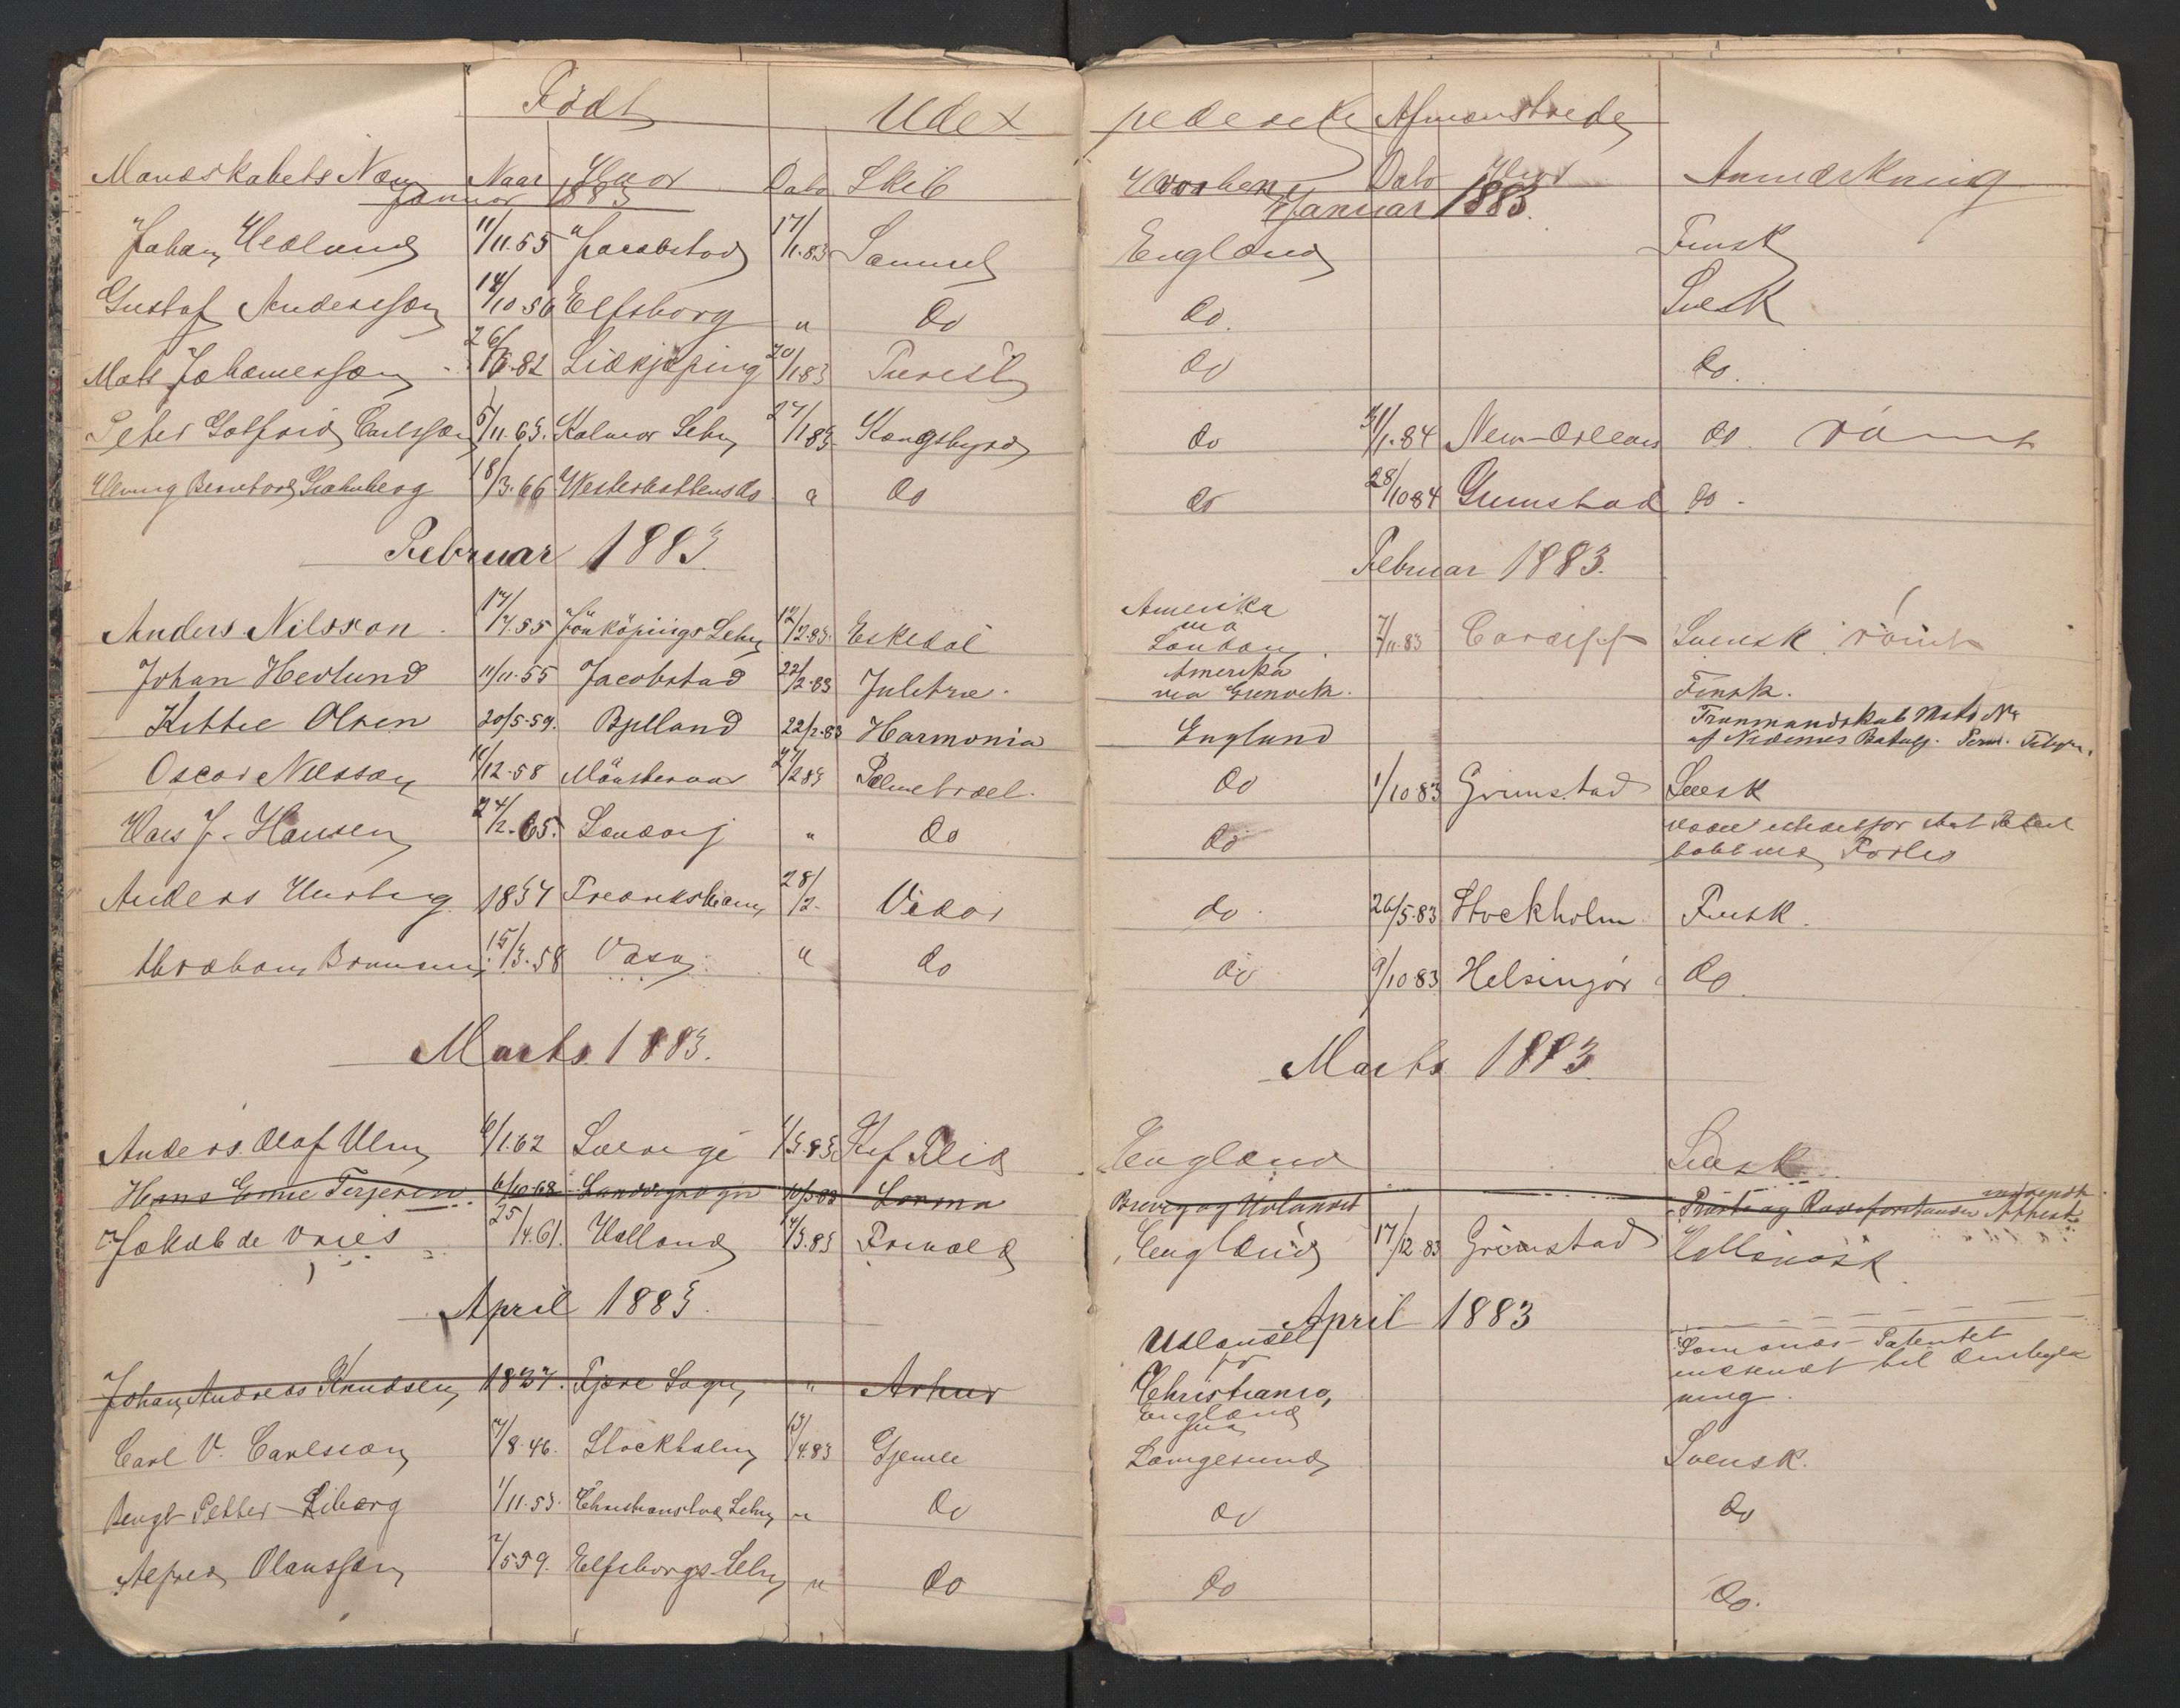 Født Udex pederede Afmønstrede
Mandskabets Navn Naar Hvor Dato Skib Hvorhen Dato Hvor Anmærkning
Januar 1883 Januar 1883.
Johan Hedlund 11/11.55 Jacobstad 17/1.83 Samuel England Finsk
Gustaf Andersson 14/10 56 Elfsborg " do do. Svesk
Mats Johannesson 26/6.82 Lidkjøping 20/1.83 do do.
Peter Gotfrid Carlsson 5/11.63. Kalmar Lehn 27/1.83 Kongsbyrd do 31/1.84 New-Orleans do. rømt
18/3.66 Westerbottens do " do do 28/10 84 Grimstad do -
Februar 1883. Februar 1883.
Anders Nilsson. 17/7.55 Jönköpings Lehn 12/2.83. Eskedal Amerika via London. 7/11.83 Cardiff Svensk. rømt
Johan Hedlund 11/11.55 Jacobstad 22/2.83 Julitræ. Amerika via Grenvik. Finsk.
Kittel Olsen 20/5.59. Bylland 22/2.83 Harmonia England
af Nedenes
Oscar Nilsson 11/12.58 Mönsteraas 27/2 83 Palmetræet. do 1/10 83 Grimstad Svesk
Hans J. Hansen 24/2.65. " do do
Anders 1837 Fredrikshamn 28/2. Vidar do. 26/5.83 Stockholm Finsk.
Abraham 15/3.58 Vasa " do do 9/10 83 Helsingør do.
Marts 1883. Marts 1883.
Anders Olaf Ulm 6/1.62 Sverige 1/3.83 England Svesk
Hans Terjesen. 6/10 68 Landvigsogn 10/3 83 Lorma Brevig og Udlandet Attest
Jakob de Vries 25/4.61. Holland 14/3.83 England 17/12.83 Grimstad Hollansk
April 1883. April 1883
Johan Andreas Knudsen 1837. Fjære Sogn " Arthur Udlandet fr Christiania, Patentet indsendt til
Carl V. Carlsson 7/8.46. Stockholm 13/4.83 Gjemle England via Langesund Svensk.
Bengt Petter Liberg 1/11.53. Christianstad Lehn " do do do
Alfred Olausson 7/5 59. Elfsborgs Lehn " do do do.